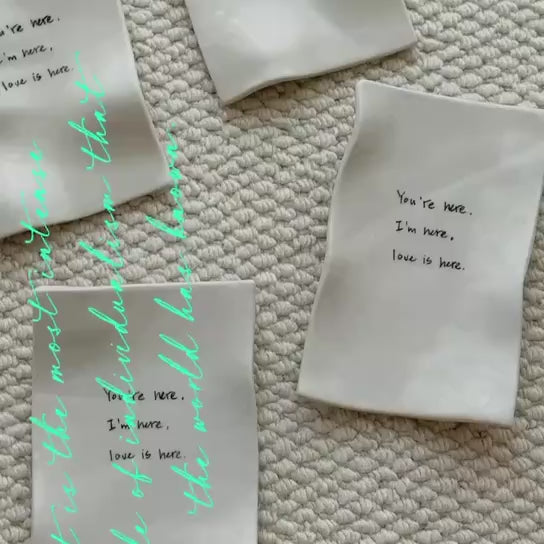 u're here.
I'm here,
love is here.
You're here.
I'm here,
love is here.
You're here.
I'm here,
love is here.
t is the most intense
de of individualism that
the world has known